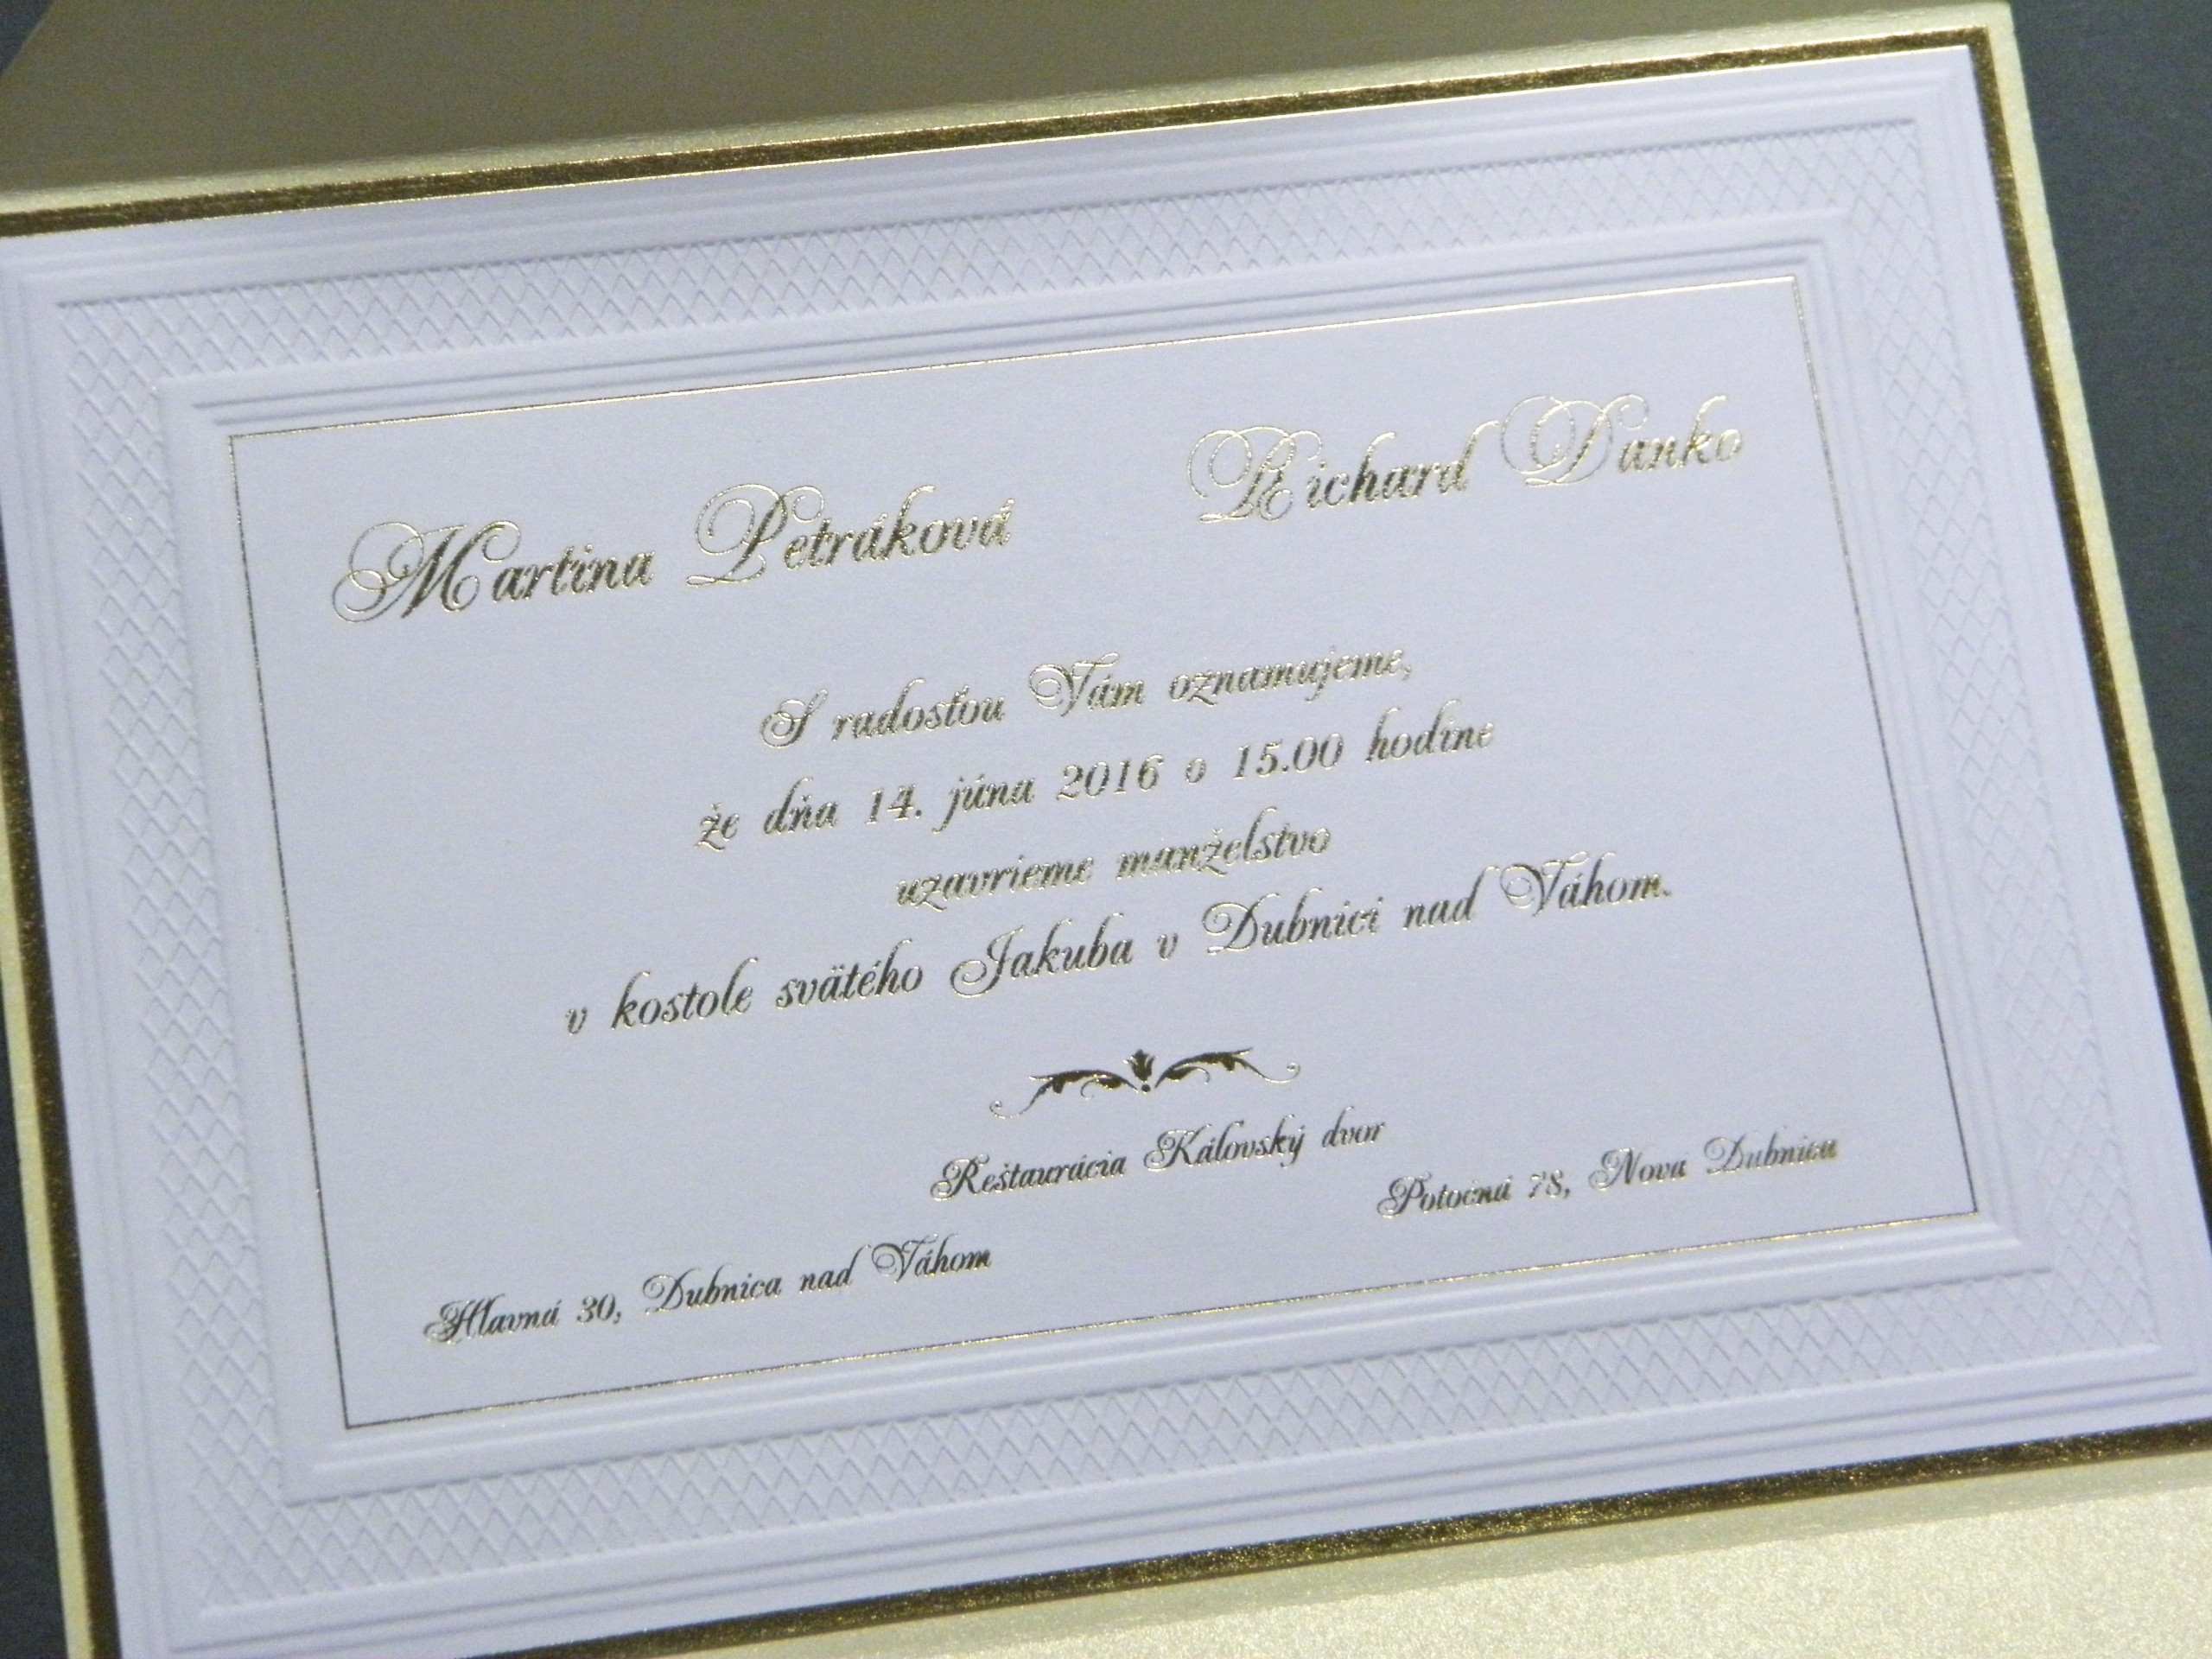 Martina Petráková Richard Danko
S radosťou Vám oznamujeme,
že dňa 14. júna 2016 o 15.00 hodine
uzavrieme manželstvo
v kostole svätého Jakuba v Dubnici nad Váhom.
Reštaurácia Káľovský dvor
Hlavná 30, Dubnica nad Váhom Potočná 78, Nová Dubnica